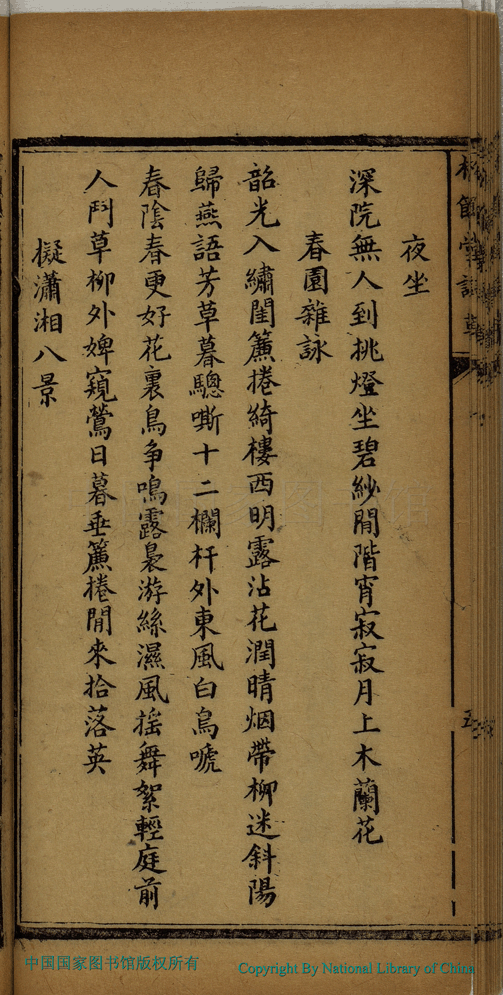 夜坐
深院無人到挑燈坐碧紗閒階宵寂寂月上木蘭花
春園雜詠
韶光入繡闺簾捲綺樓西明露沾花潤晴烟帶柳迷斜陽
歸燕語芳草暮驄嘶十二欄杆外東風白鳥嗁
春陰春更好花裏鳥争鳴露裊游絲濕風搖舞絮輕庭前
人鬥草柳外婢窺鶯日暮垂簾捲閒來拾落英
擬瀟湘八景
五
中国国家图书馆版权所有
Copyright By National Library of China